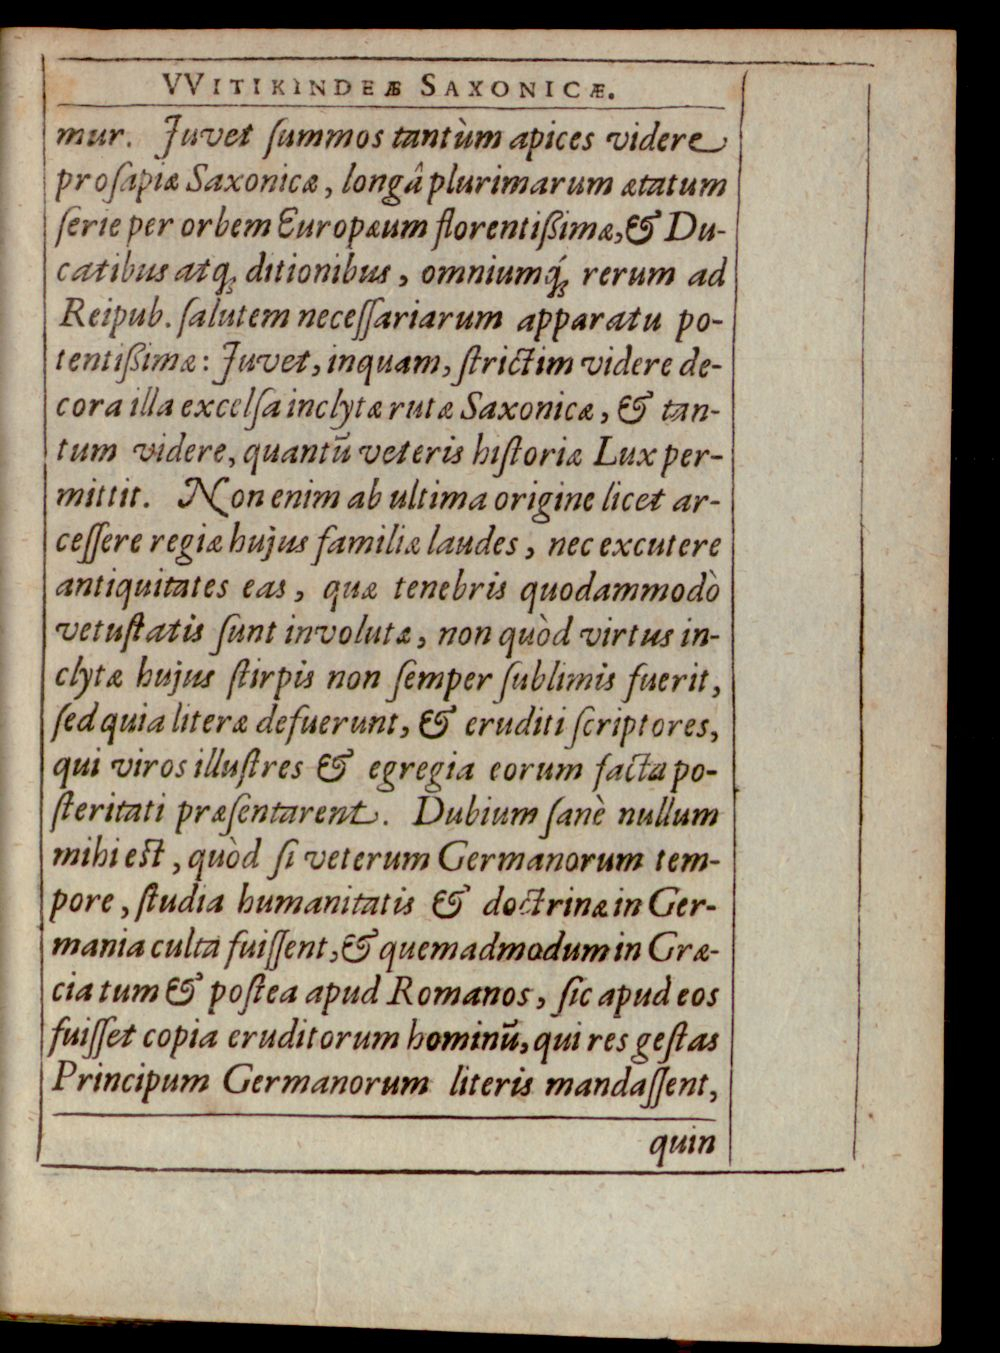 VVITIKINDEÆ SAXONICÆ.
mur. Juvet ſummos tantùm apices videre
proſapiæ Saxonicæ, longâ plurimarum ætatum
ſerie per orbem Europæum florentiſsimæ, & Du-
catibus atq; ditionibus, omniumq́; rerum ad
Reipub. ſalutem neceſſariarum apparatu po-
tentiſsimæ: Juvet, inquam, ſtrictim videre de-
cora illa excelſa inclytæ rutæ Saxonicæ, & tan-
tum videre, quantū veteris hiſtoriæ Lux per-
mittit. Non enim ab ultima origine licet ar-
ceſſere regiæ hujus familiæ laudes, nec excutere
antiquitates eas, quæ tenebris quodammodò
vetuſtatis ſunt involutæ, non quòd virtus in-
clytæ hujus ſtirpis non ſemper ſublimis fuerit,
ſed quia literæ defuerunt, & eruditi ſcriptores,
qui viros illuſtres & egregia eorum facta po-
ſteritati præſentarent. Dubium ſanè nullum
mihi eſt, quòd ſi veterum Germanorum tem-
pore, ſtudia humanitatis & doctrinæ in Ger-
mania culta fuiſſent, & quemadmodum in Græ-
cia tum & poſtea apud Romanos, ſic apud eos
fuiſſet copia eruditorum hominū, qui res geſtas
Principum Germanorum literis mandaſſent,
quin